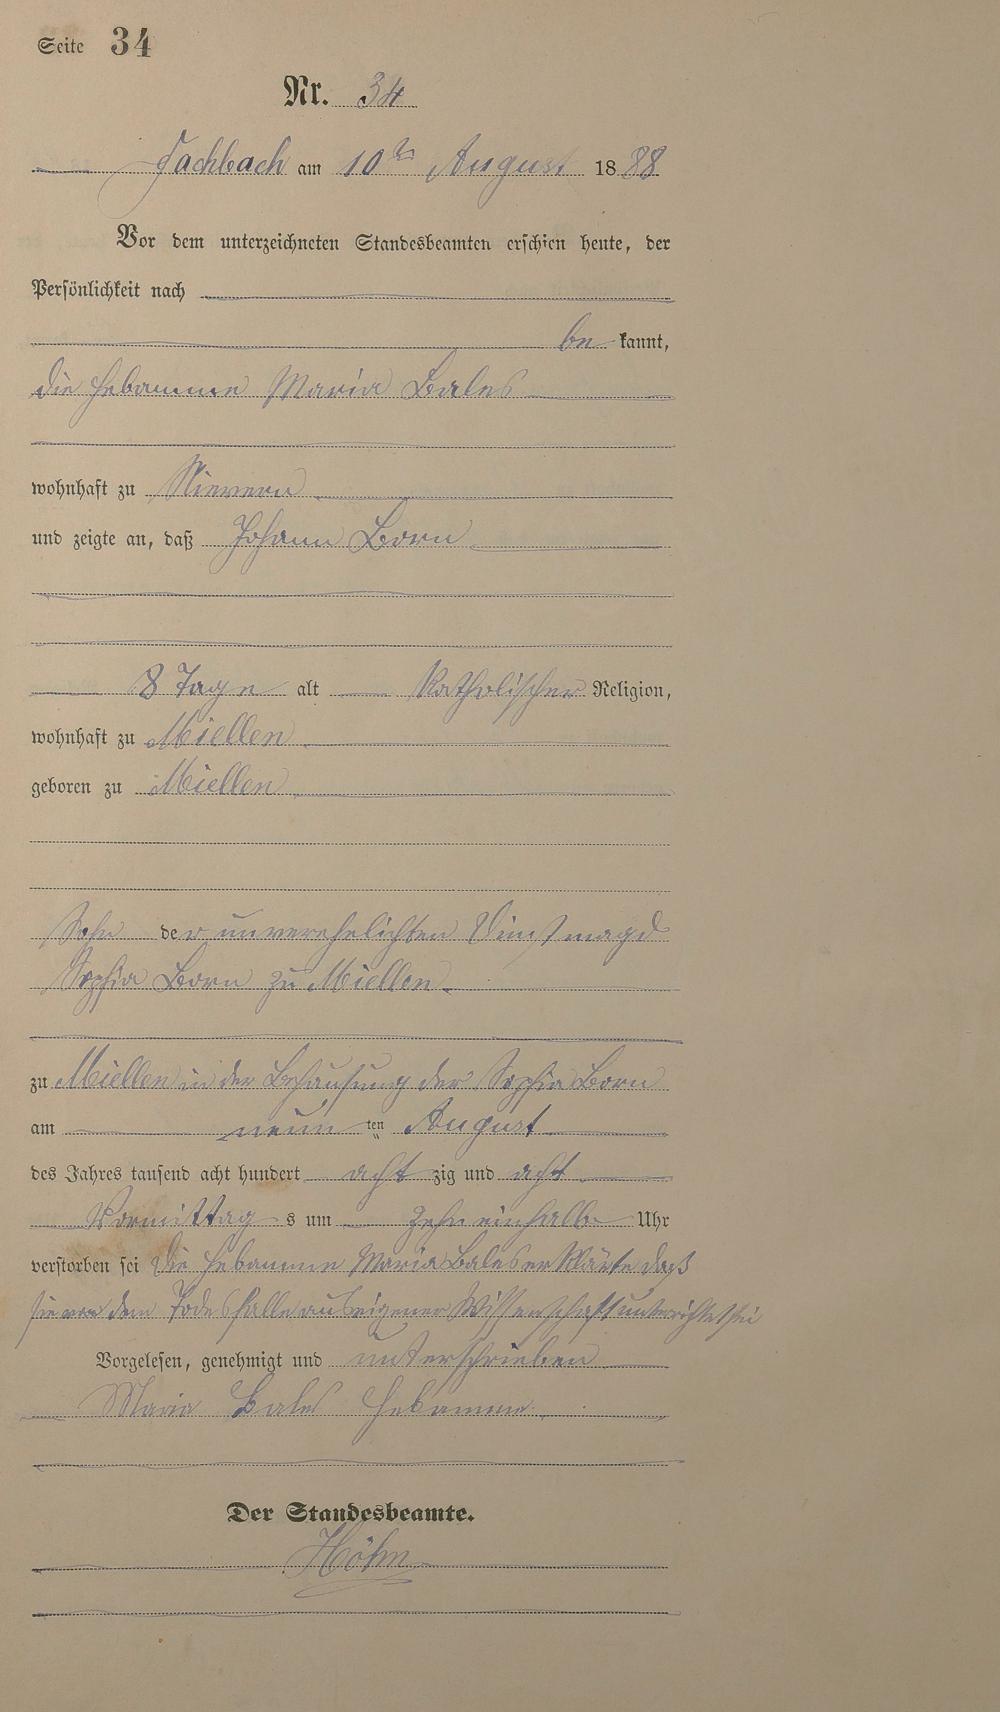 Seite 34
Nr. 34
Fachbach am 10ten August 1888
Vor dem unterzeichneten Standesbeamten erschien heute, der
Persönlichkeit nach
be kannt,
die Hebamme Maria Bales
wohnhaft zu Nievern
und zeigte an, daß Johann Born
8 Tage alt katholischer Religion,
wohnhaft zu Miellen
geboren zu Miellen
Sohn der unverehelichten Dienstmagd
Sophia Born zu Miellen
zu Miellen in der Behausung der Sophia Born
am neun ten August
des Jahres tausend acht hundert acht zig und acht
Vormittag s um zehn einhalb Uhr
verstorben sei Die Hebamme Maria Bales erklärte daß
sie von dem Todesfalle aus eigener Wissenschaft unterrichtet sei
Vorgelesen, genehmigt und unterschrieben
Maria Bales Hebamme
Der Standesbeamte.
Höhn